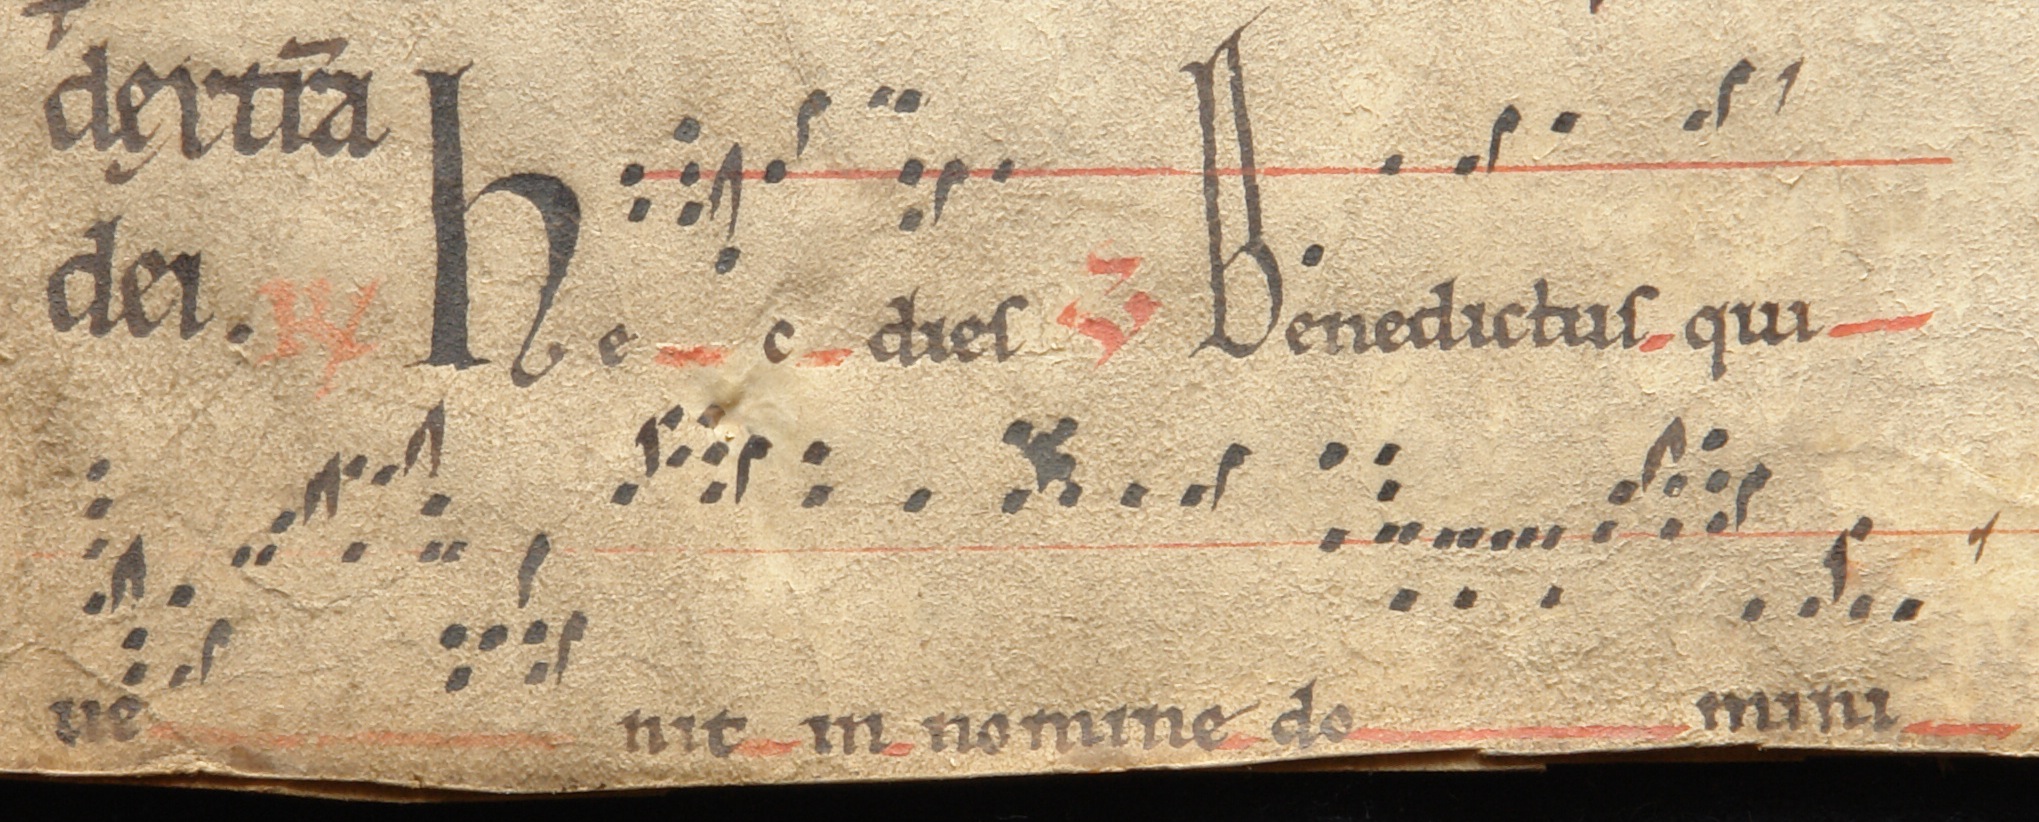 dextr̄a he c dies Ʒ Benedictus qui
dei. ℟
ne nit in nomine do mini